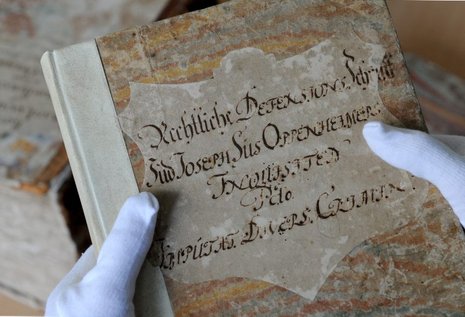 Rechtliche Defensions Schrifft
Jud Joseph Süs Oppenheimers
Inquisiten
Pto
Imputat. Divers. Crimin.